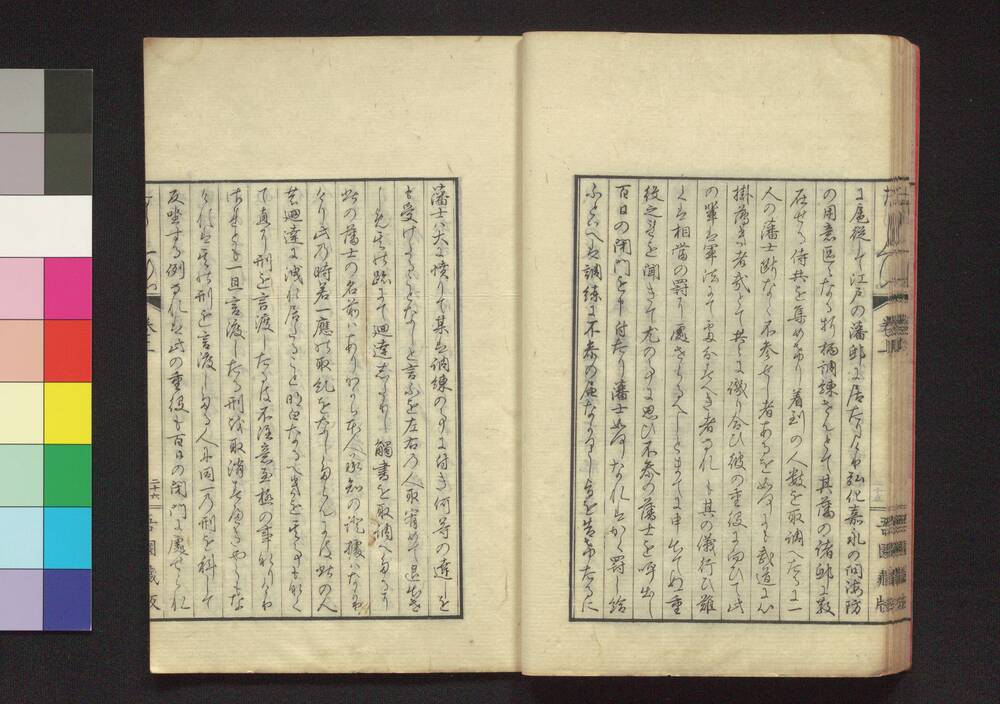 に扈從して江戸の藩邸に居たりしか弘化嘉永の間海防
の用意區々なる折柄調練せんとて其藩の諸邸に散
在せる侍共を集め給り着到の人数を取調へたるに一
人の藩士断なく不参せし者あるを如何にも武道に心
掛薄き者哉とて共に譏り合ひ彼の重役に向ひて此
の輩は軍法にて處すへき者なれとも其の儀行ひ難
くは相當の罰に處せらるへしとまてに申出てぬ重
役之を聞きて尤の事に思ひ不参の藩士を呼出し
百日の閉門を申付たり藩士如何なれはかく罰し給
ふといへは調練に不参の届なかりし旨を告けたるに
藩士は大に憤りて某は調練の事に付き何等の達しを
も受けたることなしと言ふを左右の人取宥めて退出さ
しめ其の跡にて廻達したりし觸書を取調へたるに
此の藩士の名前はありなから本人承知の證據はなか
りし此の時若一應の取糺をなしたらんには此の人
は廻達に洩れ居たること明白なるへきを其の事も無く
て直に刑を言渡したるは不注意至極の事なりしか
されとも一旦言渡したる刑は取消すへきやうもな
けれは其の刑を言渡したる人に同一の刑を科して
反坐する例なれは此の重役も百日の閉門に處せられ
卷之一
二十六
吾園藏版